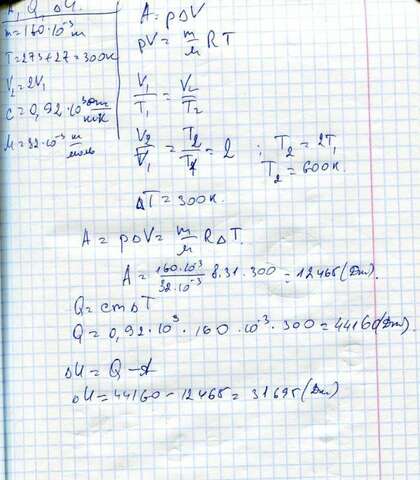 A, Q, ΔU.
m=160·10⁻³ m
T=273+27=300K
V₂=2V₁
c=0,92·10³ Dm/кгK
M=32·10⁻³ m/моль
A=pΔV
pV=m/M RT
V₁/T₁=V₂/T₂
V₂/V₁=T₂/T₁=2 ; T₂=2T₁
T₂=600K.
ΔT=300K.
A=pΔV=m/M RΔT.
A=160·10⁻³/32·10⁻³ 8.31·300=12465(Dm).
Q=cmΔT
Q=0,92·10³·160·10⁻³·300=44160(Dm)
ΔU=Q-A
ΔU=44160-12465=31695(Dm)